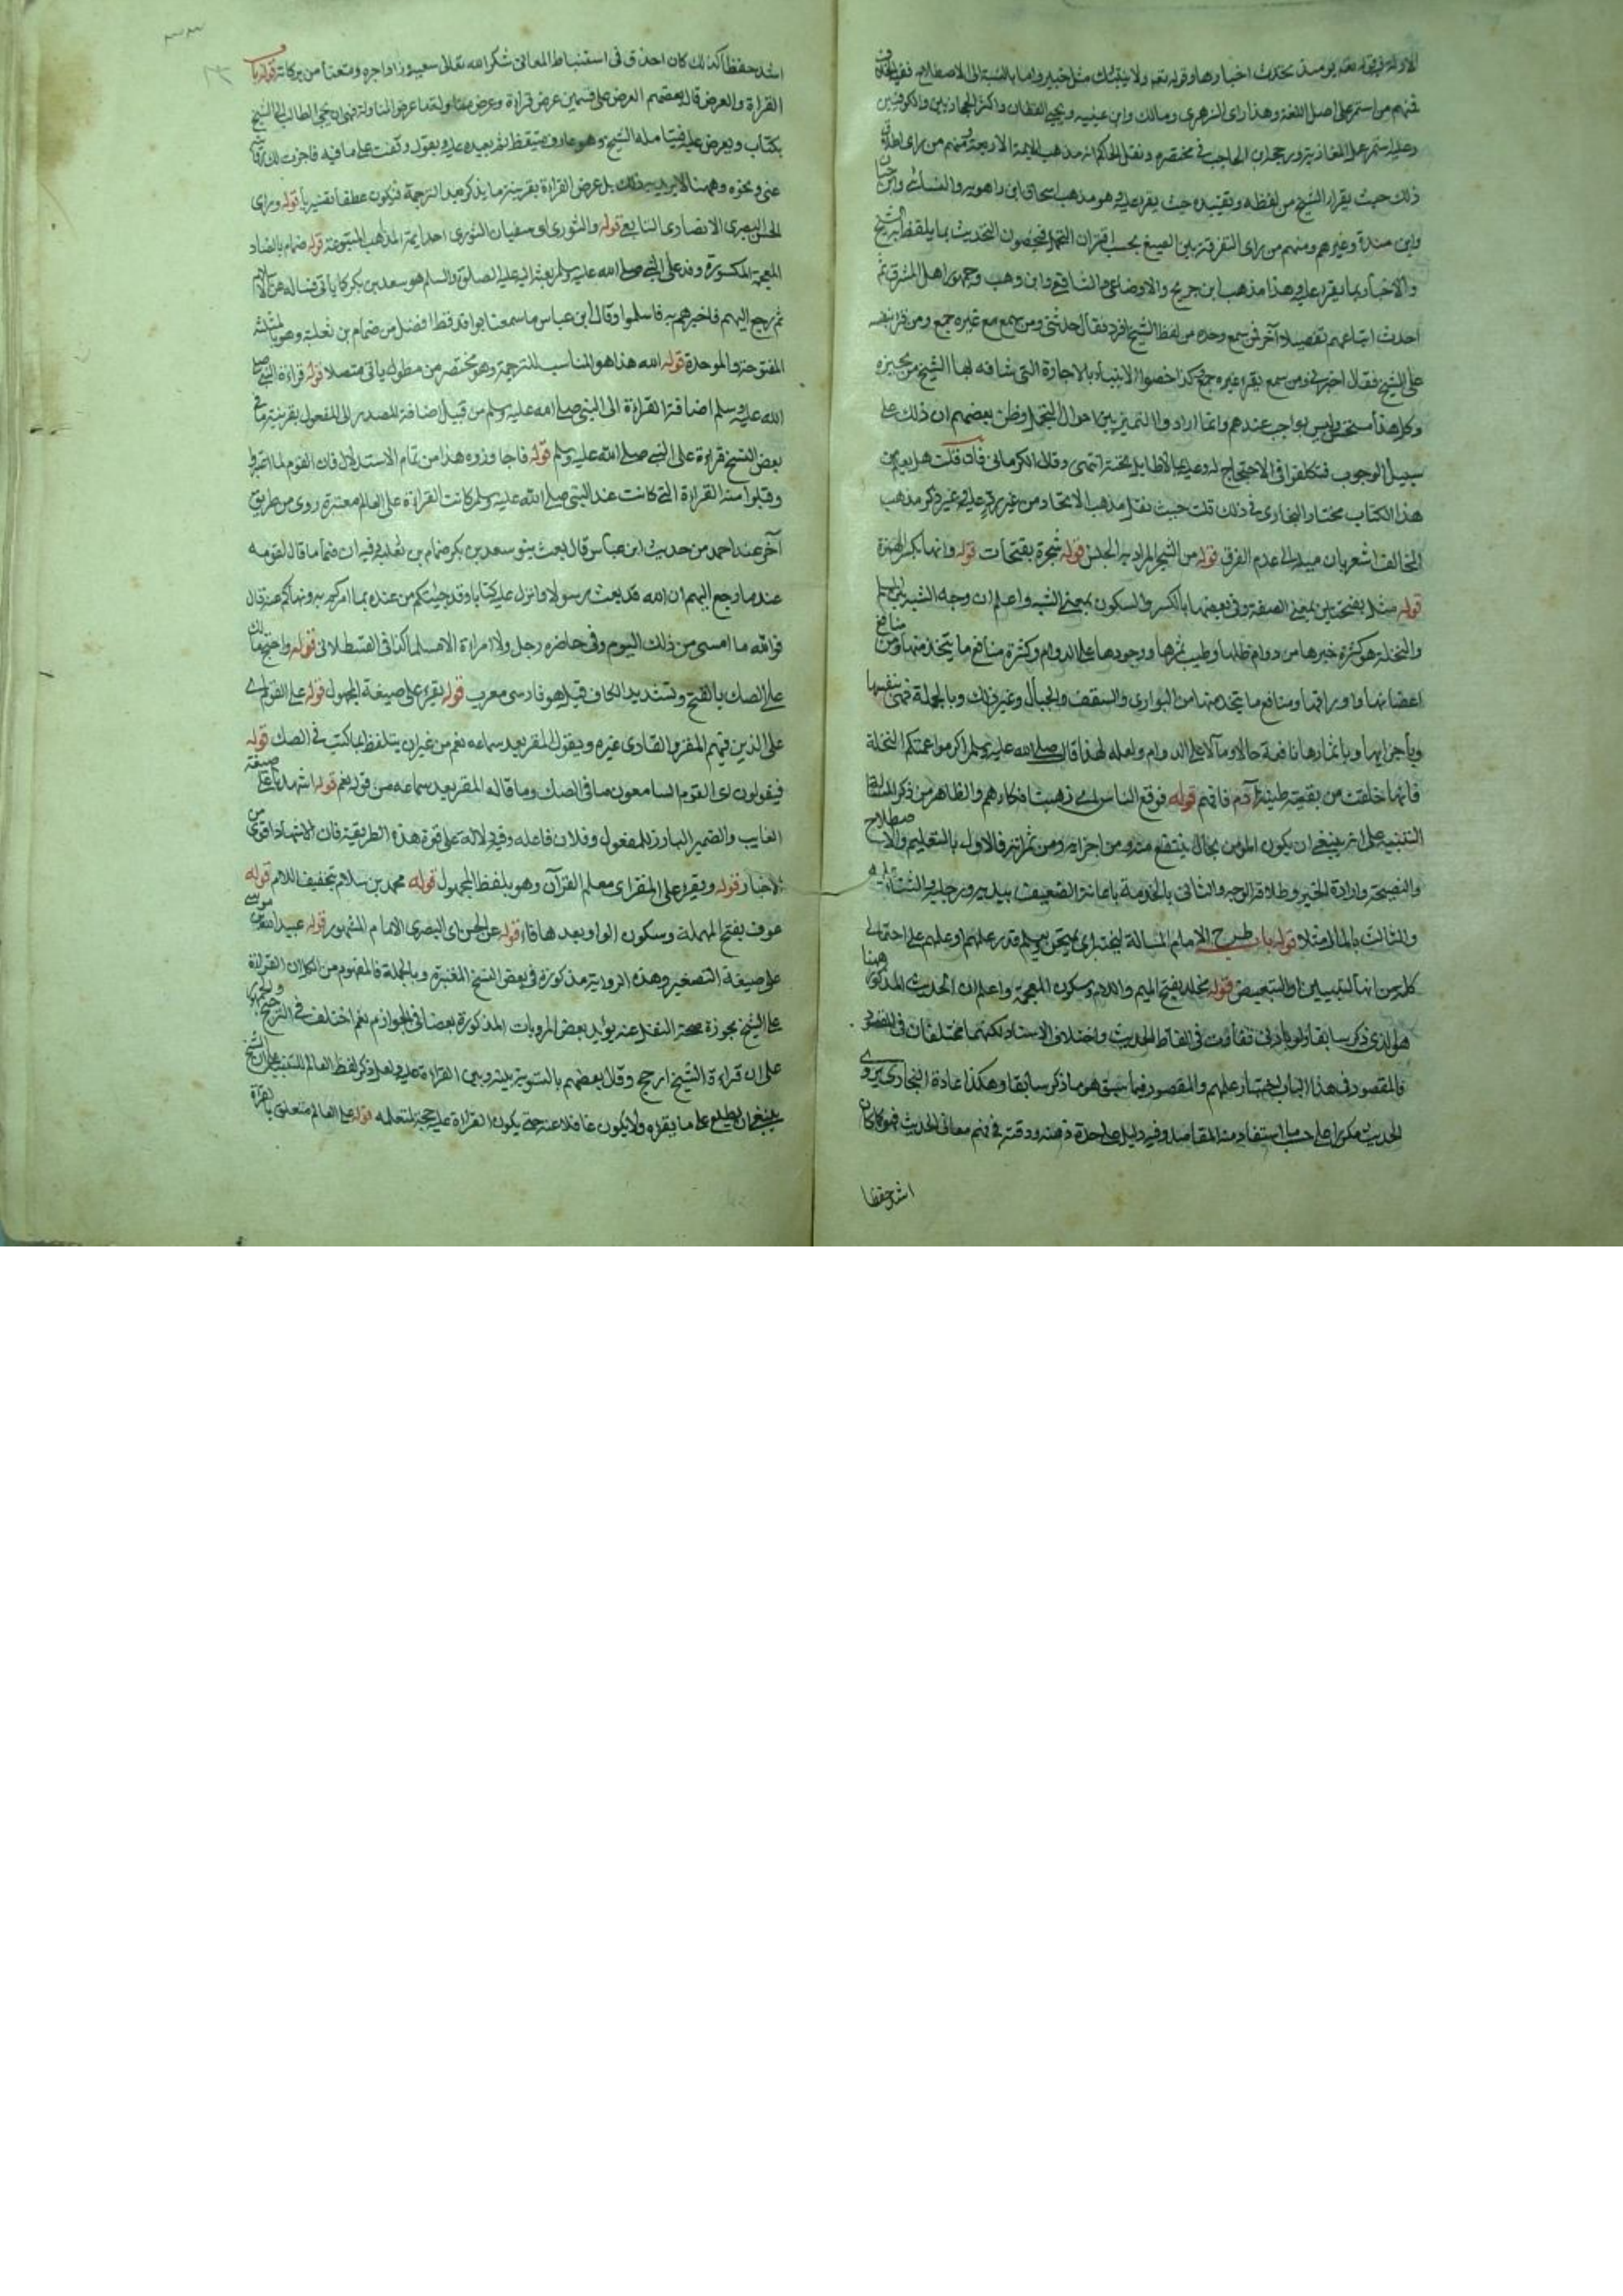 الادلة فيه قوله تعالى يومئذ تحدث اخبارها وقوله تعالى ولا ينبئك مثل خبير واما بالنسبة الى الاصطلاح ففيه الخلاف
فمنهم من استمر على اصل اللغة وهذا رأى الزهرى ومالك وابن عيينه ويحيى القطان واكثر الحجازيين والكوفيين
وعليه استمر عمل المغاربة ورجحه ابن الحاجب في مختصره ونقل الحاكم انه مذهب الايمة الاربعة ومنهم من راى اطلاق
ذلك حيث يقرأ الشيخ من لفظه وتقييده حيث يقرء عليه وهو مذهب اسحاق بن راهويه والنسائى وابن حبان
وابن مندة وغيرهم ومنهم من راى التفرقة بين الصيغ بحسب افتراق التحمل فيخصون التحديث بما يلفظ به الشيخ
والاخبار بما يقرء عليه وهذا مذهب ابن جريج والاوزاعى والشافعى وابن وهب وجمهور اهل المشرق ثم
احدث اتباعهم تفصيلا آخر فمن سمع وحده من لفظ الشيخ افرد فقال حدثنى ومن سمع مع غيره جمع ومن قرأ بنفسه
على الشيخ فقال اخبرنى ومن سمع بقراءة غيره جمع وكذا خصوا الانباء بالاجازة التى شافه لها الشيخ من يجيزه
وكل هذا مستحسن وليس بواجب عندهم وانما ارادوا التمييز بين احوال التحمل وظن بعضهم ان ذلك على
سبيل الوجوب فتكلفوا فى الاحتجاج له وعليه بما لاطايل تحته انتهى وقال الكرمانى فان قلت هل يعلم من
هذا الكتاب مختار البخارى في ذلك قلت حيث نقل مذهب الاتحاد من غير رد عليه وغير ذكر مذهب
المخالف اشعر بان ميله الى عدم الفرق قوله من الشجر المراد به الجنس قوله شجرة بفتحات قوله وانها بكسر الهمزة
قوله مثل بفتحتين بمعنى الصفة وفى بعضها بالكسر والسكون بمعنى الشبه واعلم ان وجه الشبه بين المسلم
والنخلة هو كثرة خيرها من دوام ظلها وطيب ثمرها ووجودها على الدوام وكثرة منافع ما يتخذ منها ومن منافع
اغصانها واوراقها ومنافع ما يتخذ منها من البوارى والسقف والحبال وغير ذلك وبالجملة فهى بنفسها
وباجزايها وباثمارها نافعة حالا ومآلا على الدوام ولعله لهذا قال صلى الله عليه وسلم اكرموا عمتكم النخلة
فانها خلقت من بقية طينة آدم فافهم قوله فوقع الناس اى ذهبت افكارهم والظاهر من ذكر
التنبيه على انه ينبغى ان يكون المؤمن بحال ينتفع منه ومن اجزائه ومن ثمراته فالاول بالتعليم والاصطلاح
والنصيحة وارادة الخير وطلاقة الوجه والثانى بالخدمة باعانة الضعيف بيديه ورجليه
والثالث بالمال مثلا قوله باب طرح الامام المسالة ليختبر اى يمتحن ويعلم قدر علمهم على احتمالى
كلمة من انها للتبيين او للتبعيض قوله مخلد بفتح الميم واللام وسكون المعجمة واعلم ان الحديث المذكور هنا
هو الذى ذكر سابقا ولو بادنى تفاوت فى الفاظ الحديث واختلاف الاسناد لكنهما مختلفان فى المقصود
فالمقصود فى هذا الباب اختبار علمهم والمقصود فيما سبق هو ما ذكر سابقا وهكذا عادة البخارى يروى
الحديث مكررا على حسب ما يستفاد منه المقاصد وفيه دليل على حدة ذهنه ودقته في فهم معانى الحديث فهو كما كان
اشد حفظا
اشد حفظا كذلك كان احذق فى استنباط المعانى شكر الله تعالى سعيه وزاد اجره ومتعنا من بركاته قوله باب
القراءة والعرض قال بعضهم العرض على قسمين عرض قراءة وعرض مناولة اما عرض المناولة فهو ان يجئ الطالب الى الشيخ
بكتاب ويعرض عليه فيتامله الشيخ وهو عارف متيقظ ثم يعيده عليه ويقول وقفت على ما فيه فاجزت لك
عنى ونحوه وههنا لا يريد به ذلك بل عرض القراءة بقرينة ما يذكر بعد الترجمة فيكون عطفا تفسيريا قوله وراى
الحسن البصرى الانصارى التابعى قوله والثورى اى سفيان الثورى احد ايمة المذاهب المتبوعة قوله ضمام بالضاد
المعجمة المكسورة وفد على النبى صلى الله عليه وسلم بعثه اليه عليه الصلوة والسلم هو سعد بن بكر كما يأتى فساله عن الاسلام
ثم رجع اليهم فاخبرهم به فاسلموا وقال ابن عباس ما سمعنا بوافد قط افضل من ضمام بن ثعلبة وهو بالمثلثة
المفتوحة والموحدة قوله الله هذا هو المناسب للترجمة وهو مختصر من مطول ياتى متصلا قوله قراءة النبى صلى
الله عليه وسلم اضافة القراءة الى النبى صلى الله عليه وسلم من قبيل اضافة المصدر الى المفعول بقرينة ما في
بعض النسخ قراءة على النبى صلى الله عليه وسلم قوله فاجازوه هذا من تمام الاستدلال فان القوم لما
وقبلوا منه القراءة التى كانت عند النبى صلى الله عليه وسلم كانت القراءة على العالم معتبرة روى من طريق
آخر عند احمد من حديث ابن عباس قال بعث بنو سعد بن بكر ضمام بن ثعلبة وفيه ان ضماما قال لقومه
عندما رجع اليهم ان الله قد بعث رسولا وانزل عليه كتابا وقد جئتكم من عنده بما امركم به ونهاكم عنه قال
فوالله ما امسى من ذلك اليوم وفى حاضره رجل ولا امراة الا مسلما كذا فى القسطلانى قوله واحتج مالك
على الصك بالفتح وتشديد الكاف قيل هو فارسى معرب قوله يقرء على صيغة المجهول قوله على القوم اى
على الذين فيهم المقر والقارى غيره ويقول المقر بعد سماعه نعم من غير ان يتلفظ بما كتب فى الصك قوله
فيقولون اى القوم السامعون ما فى الصك وما قاله المقر بعد سماعه من قوله نعم قوله اشهدنا على صيغة
الغايب والضمير البارز للمفعول وفلان فاعله وفيه دلالة على قوة هذه الطريقة فان الاشهاد اقوى من
الاخبار قوله ويقرء على المقرى معلم القرآن وهو بلفظ المجهول قوله محمد بن سلام بتخفيف اللام قوله
عوف بفتح المهملة وسكون الواو بعدها فاء قوله عن الحسن اى البصرى الامام المشهور قوله عبيد الله بن موسى
على صيغة التصغير وهذه الرواية مذكورة فى بعض النسخ المعتبرة وبالجملة فالمفهوم من الكل ان القراءة
على الشيخ مجوزة صحة النقل عنه يؤيد بعض المرويات المذكورة بعضا فى الجواز نعم اختلف فى الترجيح والجمهور
على ان قراءة الشيخ ارجح وقال بعضهم بالتسوية بينه وبين القراءة عليه ولعل ذكر لفظ العالم للتنبيه على ان الشيخ
ينبغى ان يطلع على ما يقرء ولا يكون غافلا عنه حتى يكون القراءة عليه حجة لمتعلمه قوله على العالم متعلق بالقراءة